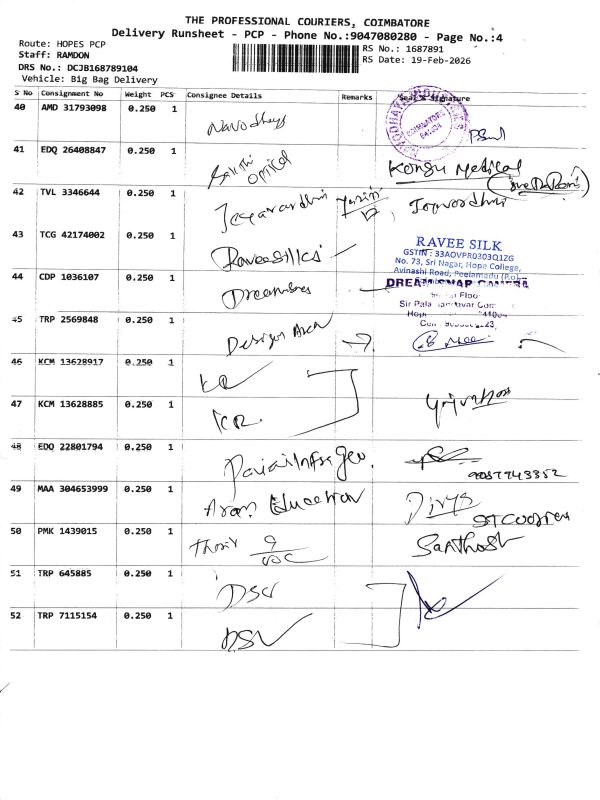 THE PROFESSIONAL COURIERS, COIMBATORE
Delivery Runsheet - PCP - Phone No.:9047080280 - Page No.:4
Route: HOPES PCP
Staff: RAMDON
DRS No.: DCJB168789104
Vehicle: Big Bag Delivery
RS No.: 1687891
RS Date: 19-Feb-2026
S No Consignment No Weight PCS Consignee Details Remarks Seal & Signature
40 AMD 31793098 0.250 1
41 EDQ 26408847 0.250 1 Sakthi Optical Kongu Medical
42 TVL 3346644 0.250 1 Jeyavardhini
43 TCG 42174002 0.250 1 Raveesilks
RAVEE SILK
GSTIN : 33AOVPR0303Q1ZG
No. 73, Sri Nagar, Hope College,
Avinashi Road, Peelamedu (P.o)
44 CDP 1036107 0.250 1
DREAM SNAP CAMERA
45 TRP 2569848 0.250 1 Design Arch
46 KCM 13628917 0.250 1
47 KCM 13628885 0.250 1 KR
48 EDQ 22801794 0.250 1
49 MAA 304653999 0.250 1 Aram Education Divya
50 PMK 1439015 0.250 1 Santhosh
51 TRP 645885 0.250 1 DSV
52 TRP 7115154 0.250 1 DSV